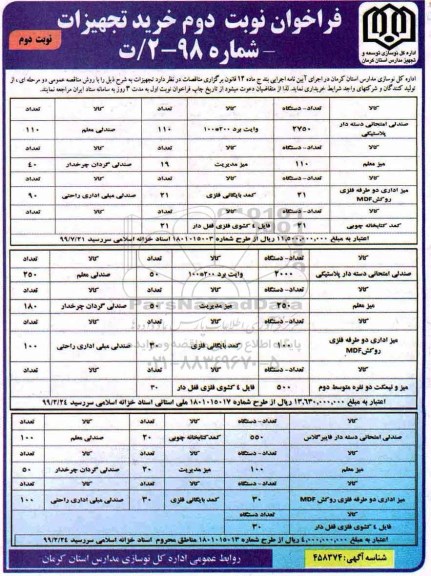 فراخوان نوبت دوم خرید تجهیزات
- شماره ۹۸-۲/ت
نوبت دوم
اداره کل نوسازی توسعه و
تجهیز مدارس استان کرمان
اداره کل نوسازی مدارس استان کرمان در اجرای آیین نامه اجرایی بند ج ماده ۱۲ قانون برگزاری مناقصات در نظر دارد تجهیزات به شرح ذیل را با روش مناقصه عمومی دو مرحله ای ، از
تولید کنندگان و شرکتهای واجد شرایط خریداری نماید. لذا از متقاضیان دعوت میشود از تاریخ چاپ فراخوان نوبت اول به مدت ۳ روز به سامانه ستاد ایران مراجعه نمایند.
کالا تعداد- دستگاه کالا تعداد کالا تعداد
صندلی امتحانی دسته دار پلاستیکی ۲۷۵۰ وایت برد ۲۰۰*۱۰۰ ۱۱۰ صندلی معلم ۱۱۰
کالا تعداد- دستگاه کالا تعداد کالا تعداد
میز معلم ۱۱۰ میز مدیریت ۱۹ صندلی گردان چرخدار ۴۰
کالا تعداد- دستگاه کالا تعداد کالا تعداد
میز اداری دو طرفه فلزی روکش MDF ۲۱ کمد بایگانی فلزی ۲۱ صندلی مبلی اداری راحتی ۹۰
کالا تعداد- دستگاه کالا تعداد
کمد کتابخانه چوبی ۲۱ فایل ۴ کشوی فلزی قفل دار ۲۱
اعتبار به مبلغ ۱۱,۵۰۰,۰۰۰,۰۰۰ ریال از طرح شماره ۱۸۰۱۰۱۵۰۰۳ اسناد خزانه اسلامی سررسید ۹۹/۷/۲۱
کالا تعداد- دستگاه کالا تعداد کالا تعداد
صندلی امتحانی دسته دار پلاستیکی ۲۰۰۰ وایت برد ۲۰۰*۱۰۰ ۵۰ صندلی معلم ۲۵۰
کالا تعداد- دستگاه کالا تعداد کالا تعداد
میز معلم ۲۵۰ میز مدیریت ۵۰ صندلی گردان چرخدار ۱۸۰
کالا تعداد- دستگاه کالا تعداد کالا تعداد
میز اداری دو طرفه فلزی روکش MDF ۱۰۰ کمد بایگانی فلزی ۳۰ صندلی مبلی اداری راحتی ۱۰۰
کالا تعداد- دستگاه کالا تعداد
میز و نیمکت دو نفره متوسط دوم ۵۰۰ فایل ۴ کشوی فلزی قفل دار ۳۰
اعتبار به مبلغ ۱۳,۶۳۰,۰۰۰,۰۰۰ ریال از طرح شماره ۱۸۰۱۰۱۵۰۱۷ ملی استانی اسناد خزانه اسلامی سررسید ۹۹/۳/۲۴
کالا تعداد- دستگاه کالا تعداد کالا تعداد
صندلی امتحانی دسته دار فایبرگلاس ۵۵۰ کمد کتابخانه چوبی ۲۰ صندلی معلم ۱۰۰
کالا تعداد- دستگاه کالا تعداد کالا تعداد
میز معلم ۱۰۰ میز مدیریت ۲۰ صندلی گردان چرخدار ۵۰
میز اداری دو طرفه فلزی روکش MDF ۳۰ کمد بایگانی فلزی ۳۰ صندلی مبلی اداری راحتی ۱۰۰
کالا تعداد دستگاه
فایل ۴ کشوی فلزی قفل دار ۳۰
اعتبار به مبلغ ۴,۰۰۰,۰۰۰,۰۰۰ ریال از طرح شماره ۱۸۰۱۰۱۵۰۱۳ مناطق محروم اسناد خزانه اسلامی سررسید ۹۹/۲/۲۴
شناسه آگهی: ۴۵۸۳۷۴
روابط عمومی اداره کل نوسازی مدارس استان کرمان
ParsNamadData
۰۲۱-۸۸۳۴۹۶۷۰-۵